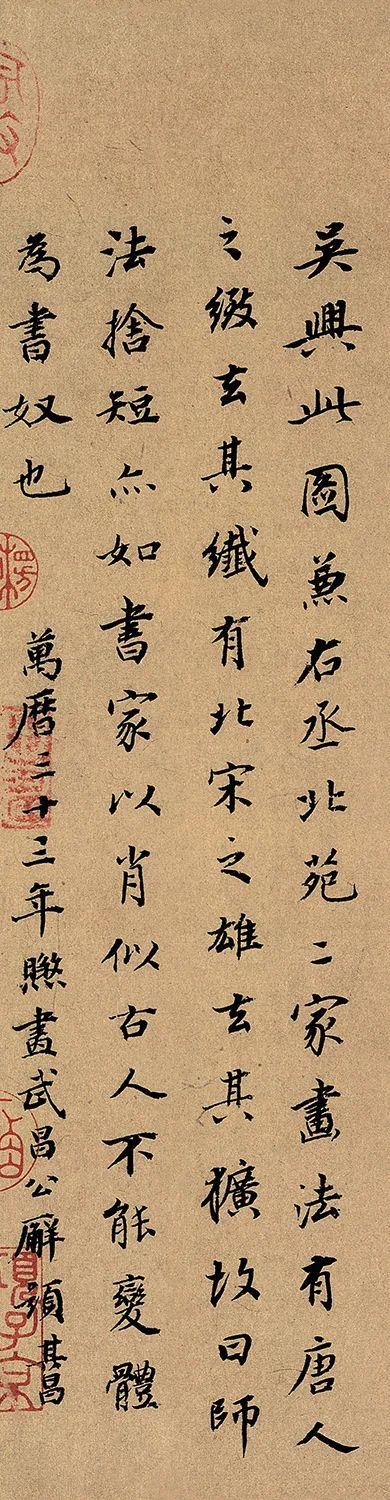 吳興此圖兼右丞北苑二家畫法有唐人
之緻去其纖有北宋之雄去其獷故曰師
法捨短亦如書家以肖似古人不能變體
為書奴也 萬曆三十三年曬畫武昌公廨題其昌